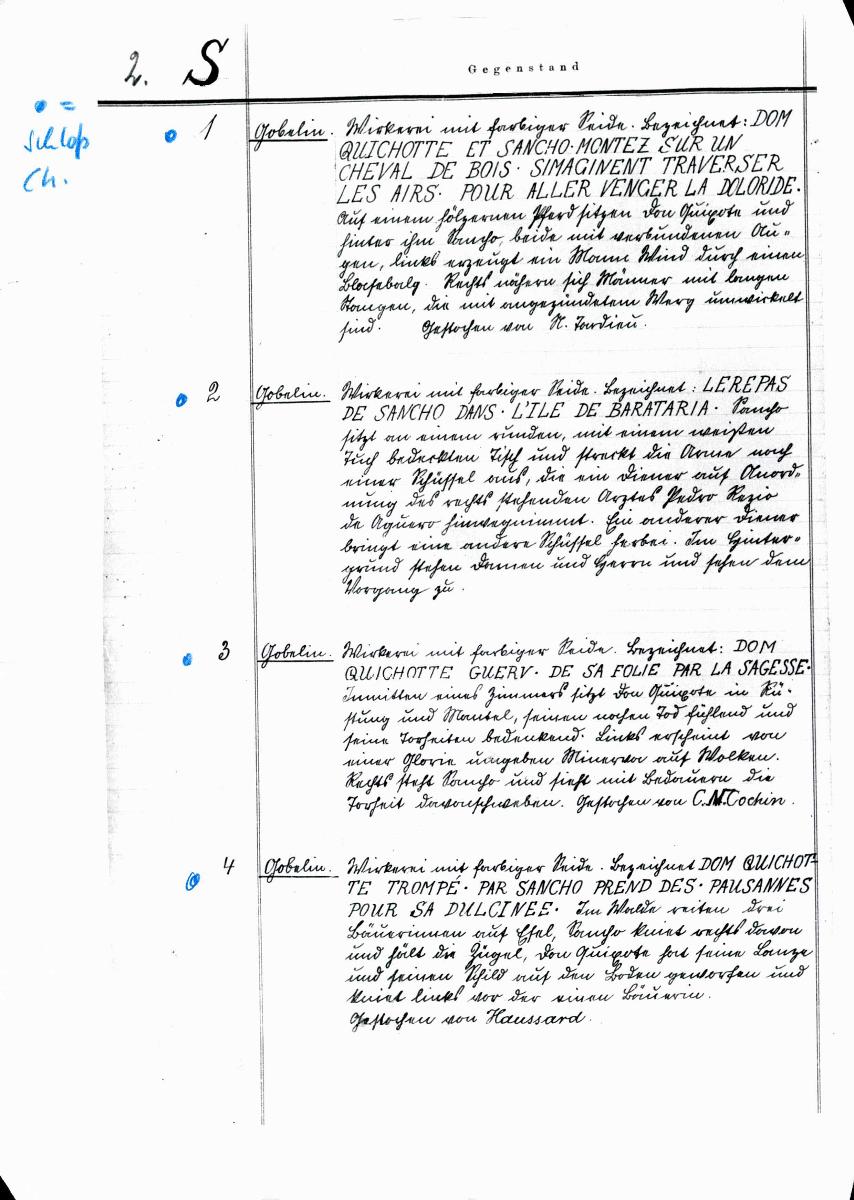 2. S
Gegenstand
• =
Schloß
Ch.
1 Gobelin. Wirkerei mit farbiger Seide. Bezeichnet: DOM
QUICHOTTE ET SANCHO·MONTEZ SUR UN
CHEVAL DE BOIS· SIMAGINENT TRAVERSER
LES AIRS· POUR ALLER VENGER LA DOLORIDE.
Auf einem hölzernen Pferd sitzen Don Quixote und
hinter ihm Sancho, beide mit verbundenen Au-
gen, links erzeugt ein Mann Wind durch einen
Blasebalg. Rechts nähern sich Männer mit langen
Stangen, die mit angezündetem Werg umwickelt
sind. Gestochen von N. Tardieu.
2 Gobelin. Wirkerei mit farbiger Seide. Bezeichnet: LEREPAS
DE SANCHO DANS· L'ILE DE BARATARIA· Sancho
sitzt an einem runden, mit einem weißen
Tuch bedeckten Tisch und streckt die Arme nach
einer Schüssel aus, die ein Diener auf Anord-
nung des rechts stehenden Arztes Pedro Rezio
de Aguero hinwegnimmt. Ein anderer Diener
bringt eine andere Schüssel herbei. Im Hinter-
grund stehen Damen und Herrn und sehen dem
Vorgang zu.
3 Gobelin. Wirkerei mit farbiger Seide. Bezeichnet: DOM
QUICHOTTE GUERV· DE SA FOLIE PAR LA SAGESSE·
Inmitten eines Zimmers sitzt Don Quixote in Rü-
stung und Mantel, seinen nahen Tod fühlend und
seine Torheiten bedenkend. Links erscheint von
einer Glorie umgeben Minerva auf Wolken.
Rechts steht Sancho und sieht mit Bedauern die
Torheit davonschweben. Gestochen von C.N.Cochin.
4 Gobelin. Wirkerei mit farbiger Seide. Bezeichnet DOM QUICHOT-
TE TROMPÉ· PAR SANCHO PREND DES· PAUSANNES
POUR SA DULCINEE· Im Walde reiten drei
Bäuerinnen auf Esel, Sancho kniet rechts davon
und hält die Zügel, Don Quixote hat seine Lanze
und seinen Schild auf den Boden geworfen und
kniet links vor der einen Bäuerin.
Gestochen von Haussard.